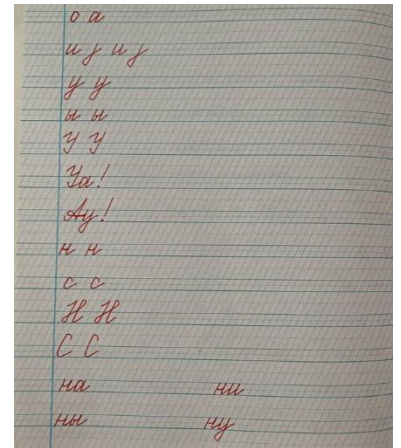 о а
и у и у
у у
ы ы
У У
Уа!
Ау!
н н
с с
Н Н
С С
на ни
ны ну